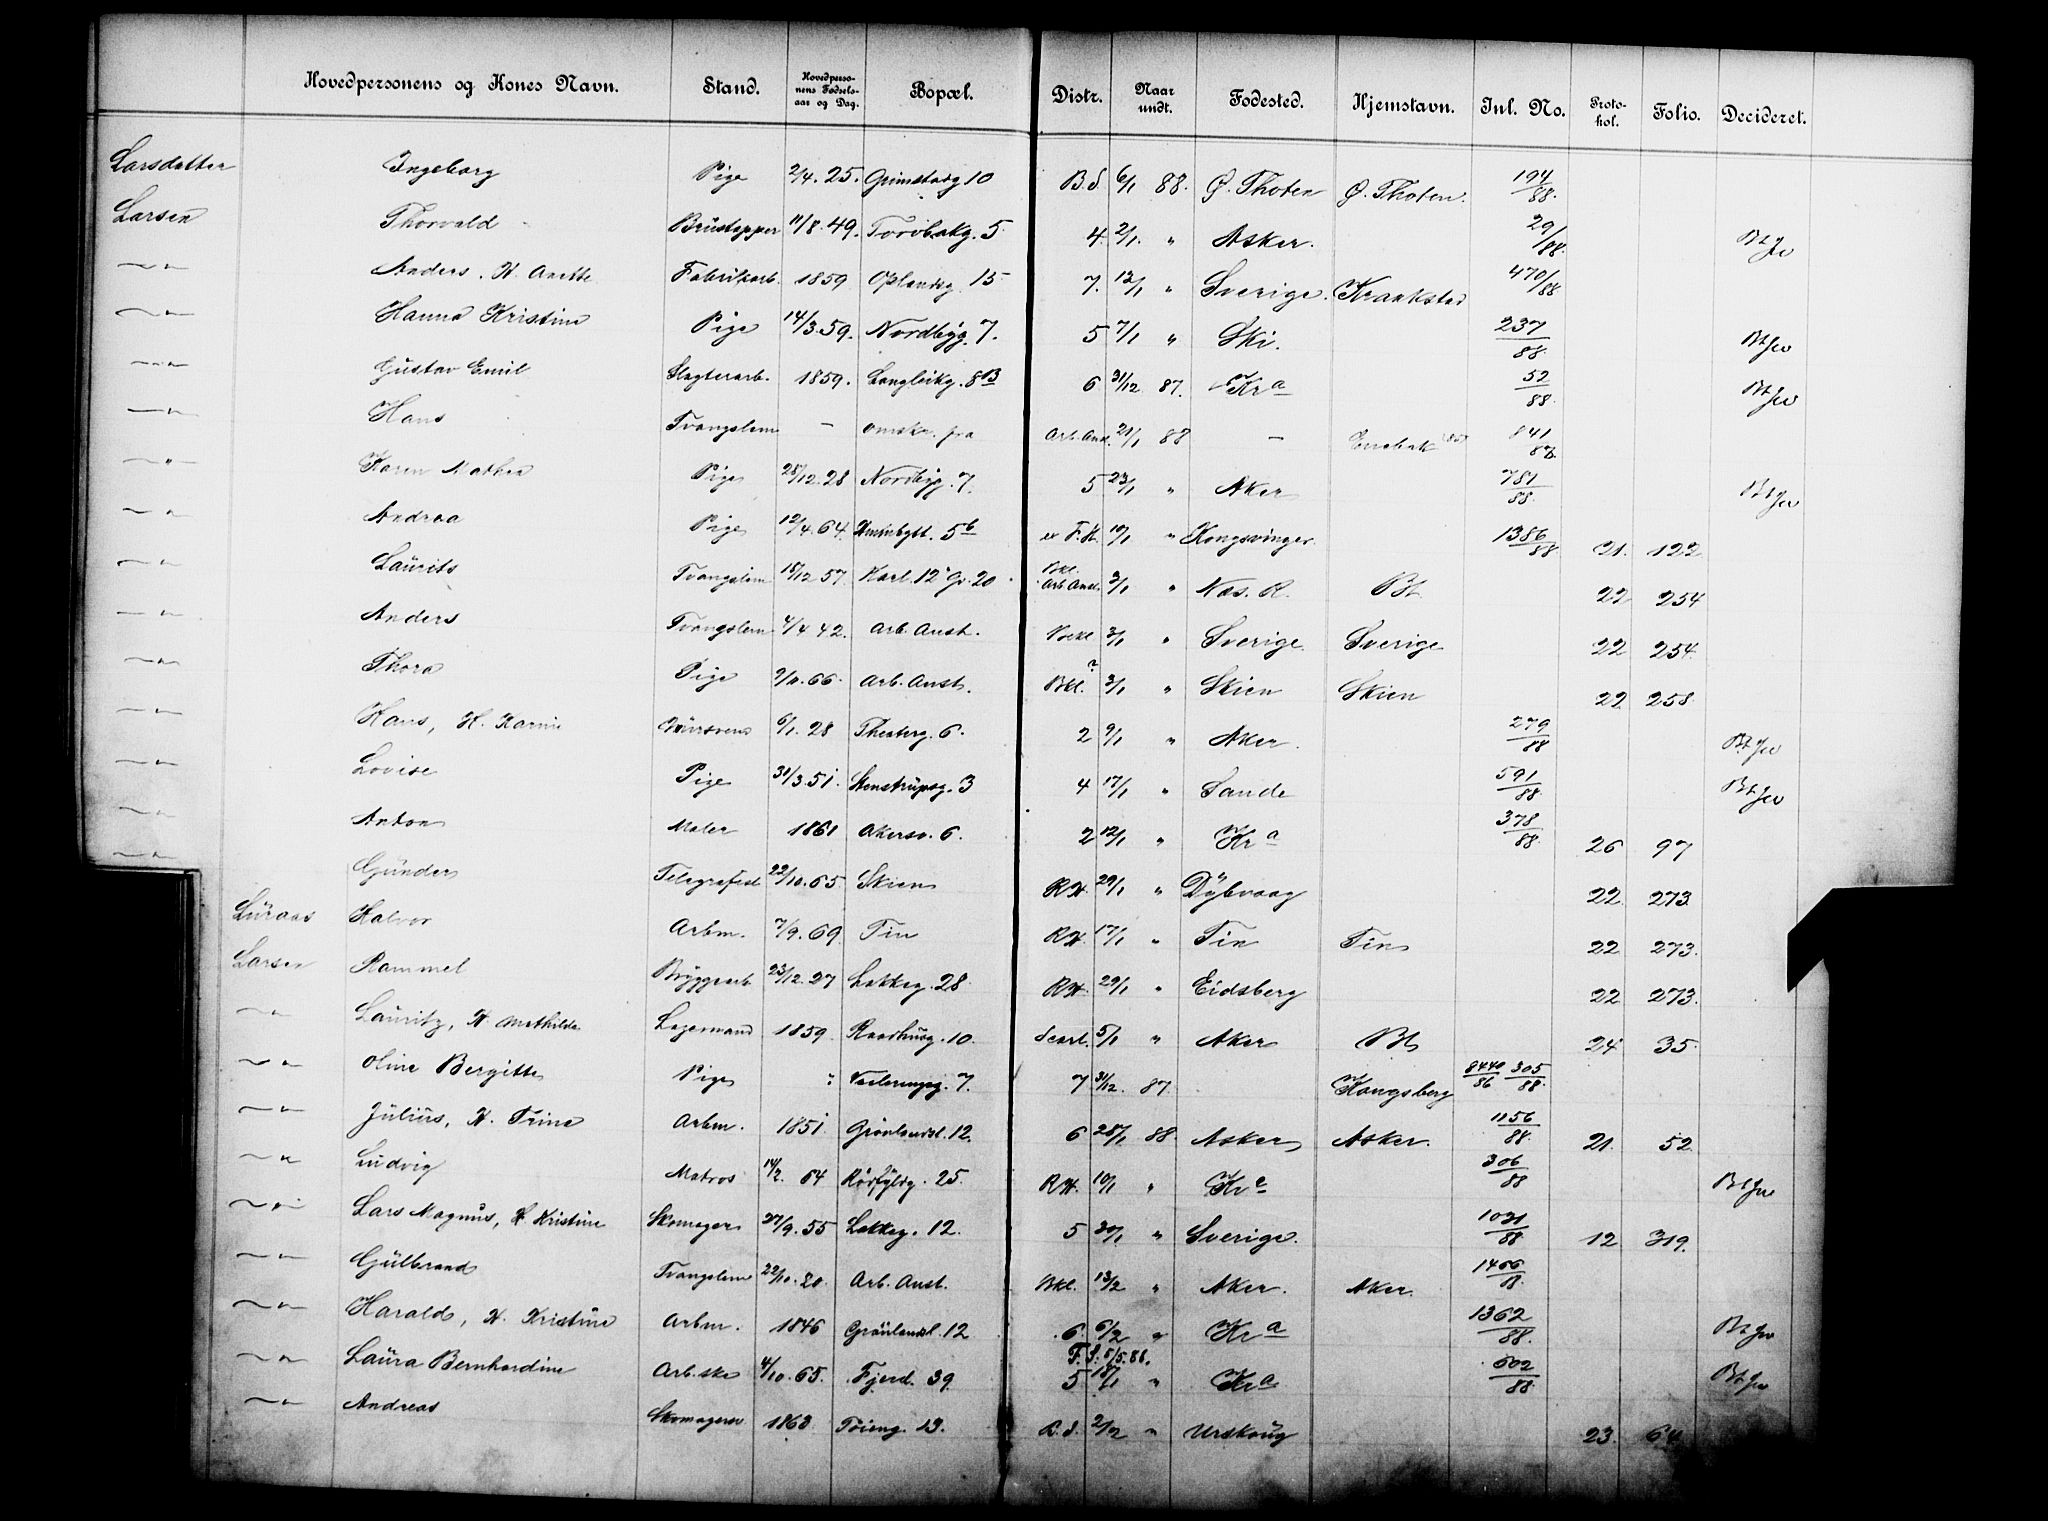 Hovedpersonens og Kones Navn. Stand. Hovedperso-nens Fødsels-aar og Dag. Bopæl. Distr. Naar undt. Fødested. Hjemstavn. Inl. No. Proto-kol. Folio. Decideret.
Larsdatter Ingeborg Pige 2/4. 25. Grimstadg 10 B.S. 6/1 88. Ø. Thoten Ø. Thoten. 194/88.
Larsen Thorvald Brüstapper 11/8. 49. Torvbakg. 5 4. 2/1. " Asker. 29/88. Bt Jw
—"— Anders. H. Anette Fabrikarb. 1859 Oplandsg. 15 7. 12/1 " Sverige. Kraakstad 470/88
—"— Hanna Kristine Pige 14/3. 59. Nordbyg. 7. 5 7/1 " Ski. 237/88 Bt Jw
—"— Gustav Emil Slagterarb. 1859. Langleikg. 8B 6 31/12 87. Kra 52/88. Bt Jw
—"— Hans Tvangslem — omskr. fra Arb. Anst. 21/1 88 — Enebak 841/87.
—"— Karen Mathea Pige 28/12. 28 Nordbyg. 7. 5 23/1 " Aker 781/88 Bt Jw
—"— Andrea Pige 12/4. 64. 5b F.H. 10/1 " Kongsvinger. 1386/88. 21. 122
—"— Laurits Tvangslem 15/12 57. Karl. 12' Gr. 20 Bkl. Arb. Anst. 3/1 " Næs. R. Bt 22 254
—"— Anders Tvangslem 4/4 42. Arb. Anst. Bkl 3/1 " Sverige. Sverige 22 254.
—"— Thora Pige 9/11. 66. Arb. Anst. Bkl. ? 3/1 " Skien Skien 22 258.
—"— Hans, H. Karine 6/1. 28 Theaterg. 6. 2 9/1 " Aker. 279/88 Bt Jw
—"— Lovise Pige 31/3. 51. Stenstrupsg. 3 4 17/1 " Sande 591/88. Bt Jw
—"— Anton Maler 1861 Akersv. 6. 2 12/1 " Kra 378/88. 26 97
—"— Gunder Telegrafist 22/10. 65. Skien RH. 20/1 " Dybvaag 22. 273.
Lüraas Halvor Arbm. 7/9. 69. Tin RH. 17/1 " Tin Tin 22 273.
Larsen Rammel Bryggearb. 23/12. 27 Lakkeg. 28. RH. 20/1 " Eidsberg 22 273.
—"— Lauritz, H. Mathilde Lagermand 1859. Raadhusg. 10. Scarl. 5/1 " Aker Bt 24 35.
—"— Oline Bergitte Pige " Vaalerengg. 7. 7 31/12. 87. Kongsberg 8440/86 305/88.
—"— Julius, H. Trine Arbm. 1851. Grønlandsl. 12. 6 28/1 88. Asker Asker. 1156/88. 21. 52.
—"— Ludvig Matros 14/2. 64 Rörfyldg. 25. RH. 10/1 " Kra 306/88 Bt Jw
—"— Lars Magnus, H Kristine Skomager 27/9. 55 Lakkeg. 12. 5 30/1 " Sverige. 1031/88 12 319.
—"— Gulbrand Tvangslem 22/10. 20. Arb. Anst. Bkl. 13/2 " Aker. Aker. 1466/88.
—"— Harald, H. Kristine Arbm. 1846 Grönlandsl. 12 6. 6/2 " Kra 1362/88. Bt Jw
—"— Laura Bernhardine Arb.ske 4/10. 65. Fjerd. 39 F.S. 5/5. 88. 5 18/1 " Kra 602/88 Bt Jw
—"— Andreas Skomagersv 1863 Töieng. 13. B.S. 2/2 " Urskoug 23. 64